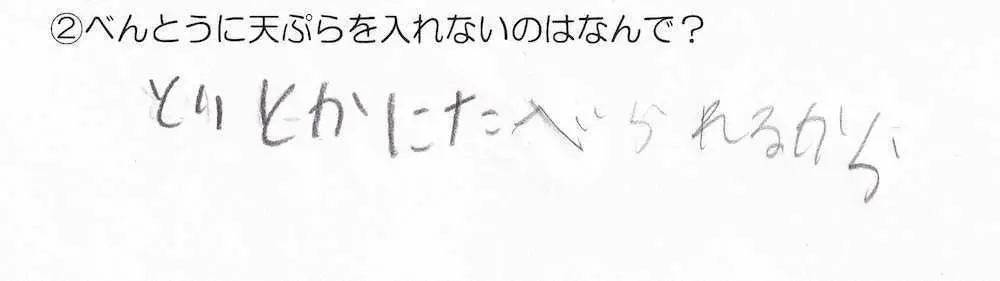 ②べんとうに天ぷらを入れないのはなんで？
とりとかにたべられるから